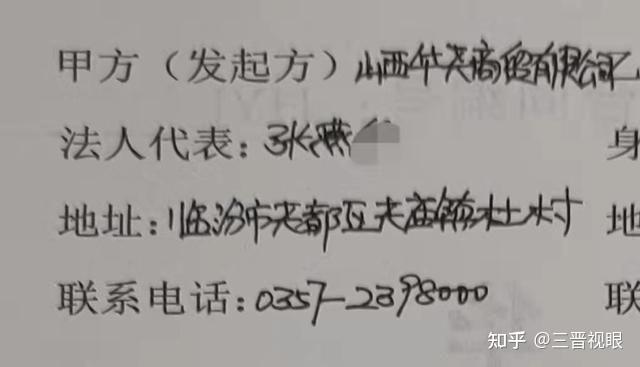 甲方（发起方）山西华尧商贸有限公司
法人代表：张 身
地址：临汾市尧都区尧庙镇杜村 地
联系电话：0357-2398000 联
知乎 @三晋视眼